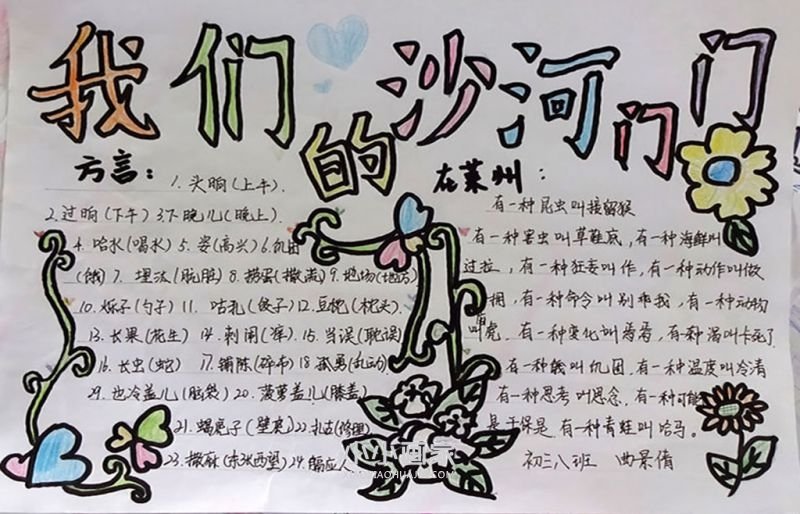 我们的沙河门门
方言：
1.头晌(上午).
2.过晌(下午) 3.下晚儿(晚上).
4.哈水(喝水) 5.姿(高兴) 6.饥困
(饿) 7.埋汰(肮脏) 8.捞蛋(撒谎) 9.地场(地方)
10.(勺子) 11.咕扎(饺子) 12.豆枕(枕头).
13.长果(花生) 14.刺闹(痒) 15.当误(耽误)
16.长虫(蛇) 17.铺陈(碎布) 18.(乱动)
19.也冷盖儿(脑袋) 20.菠萝盖儿(膝盖)
21.蝎虎子(壁虎) 22.扎古(修理)
23.撒麻(东张西望) 24.
在莱州：
有一种昆虫叫接留猴
有一种害虫叫草鞋底，有一种海鲜叫
，有一种狂妄叫作，有一种动作叫做
，有一种命令叫别乖我，有一种动物
叫虎，有一种变化叫，有一种渴叫卡死了
有一种饿叫饥困，有一种温度叫冷清
有一种思考叫思念，有一种可能
是干保是，有一种青蛙叫哈马。
初三八班 曲景倩
小小画家
XIAOHUAJIA.COM